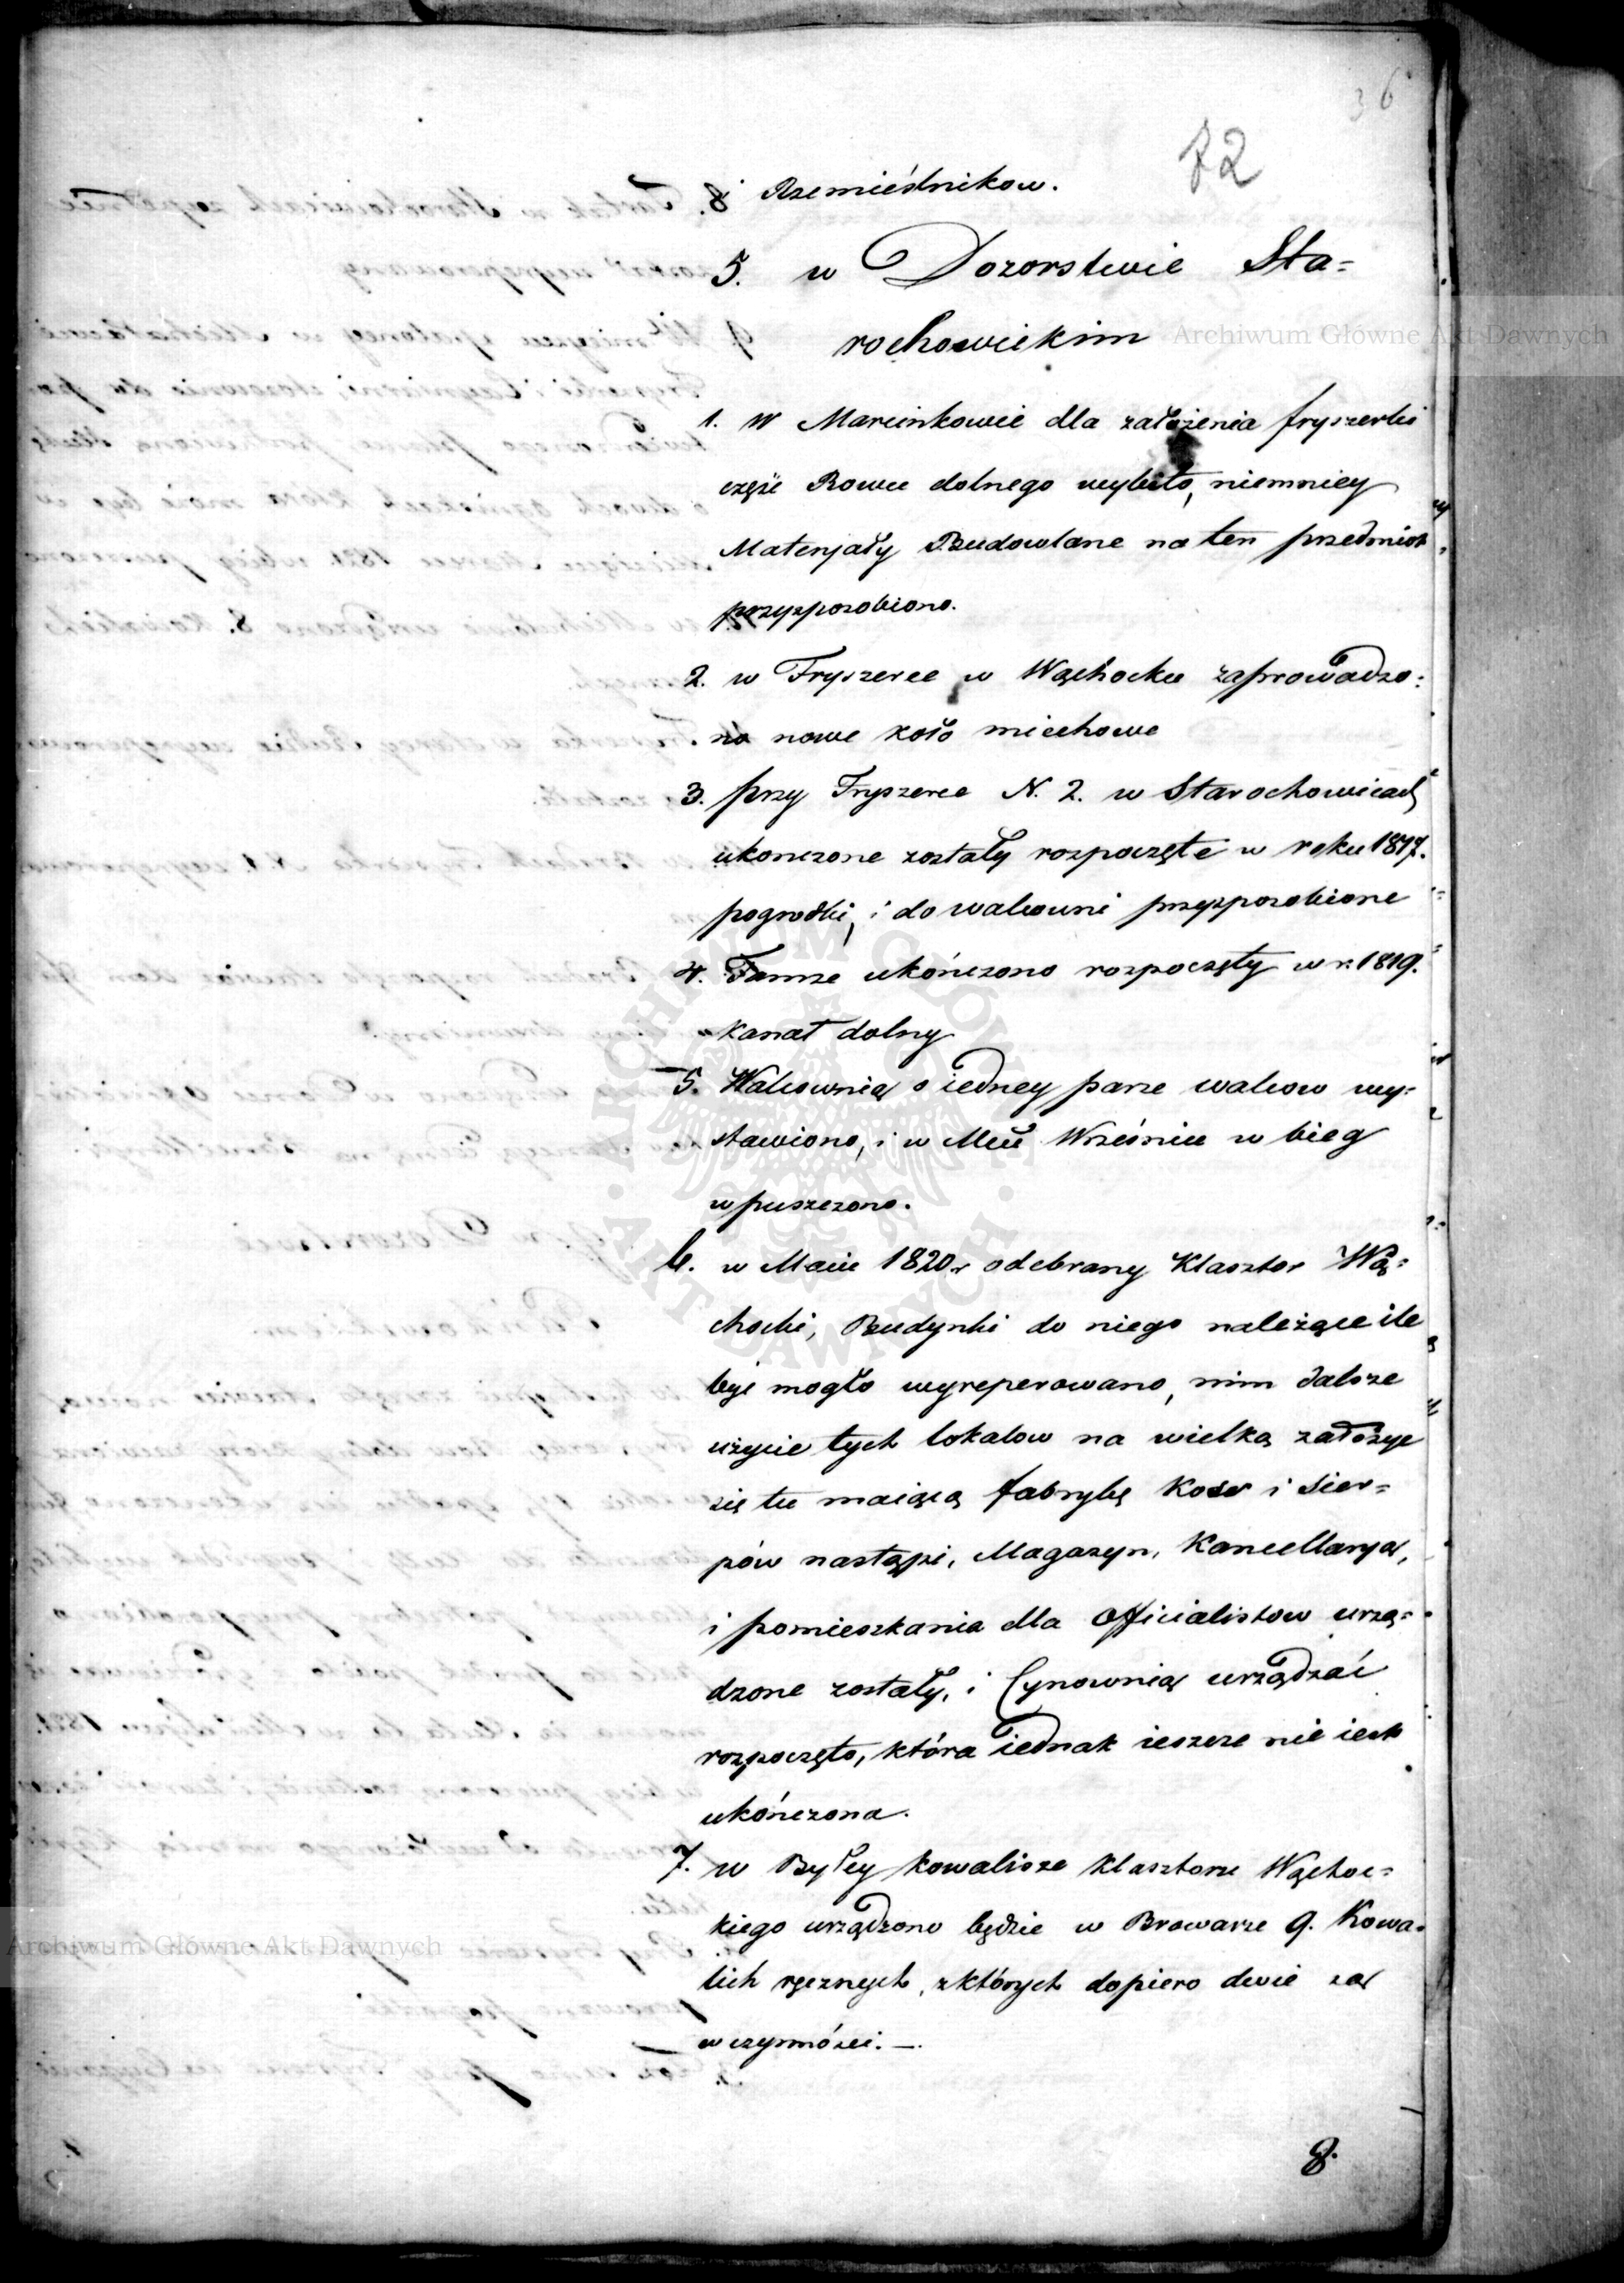 36
82
i Rzemieślnikow.
5. w Dozorstwie Sta=
rochowickim
1. W Marcinkowie dla założenia fryszerki
część Rowu dolnego wybito, niemniey
Materyały Budowlane na ten przedmiot
przysposobiono.
2. w Fryszerce w Wąchocku zaprowadzo=
no nowe koło miechowe
3. przy Fryszerce N. 2. w Starochowicach
ukonczone zostały rozpoczęte w roku 1817.
pogrodki, i do walcowni przysposobione
4. Tamże ukończono rozpoczęty w r. 1819.
kanał dolny
5. Walcownią o iedney parze walcow wy=
stawiono, i w Mcu Wrześniu w bieg
wpuszczono.
6. w Maiu 1820 r odebrany Klasztor Wą=
chocki, Budynki do niego należące ile
być mogło wyreperowano, nim dalsze
użycie tych lokalow na wielką założyć
się tu maiącą fabrykę Kos i Sier=
pów nastąpi, Magazyn, Kancellarya,
i pomieszkania dla Officialistow urzą=
dzone zostały, i Cynownią urządzać
rozpoczęto, która iednak ieszcze nie iest
ukończona.
7. w Byłey kowalisze klasztoru Wąchoc=
kiego urządzono będzie w Browarze 9. Kowa=
lich ręcznych, z których dopiero dwie są
w czynności. —.
8.
Archiwum Główne Akt Dawnych
Archiwum Główne Akt Dawnych
ARCHIWUM GŁÓWNE AKT DAWNYCH